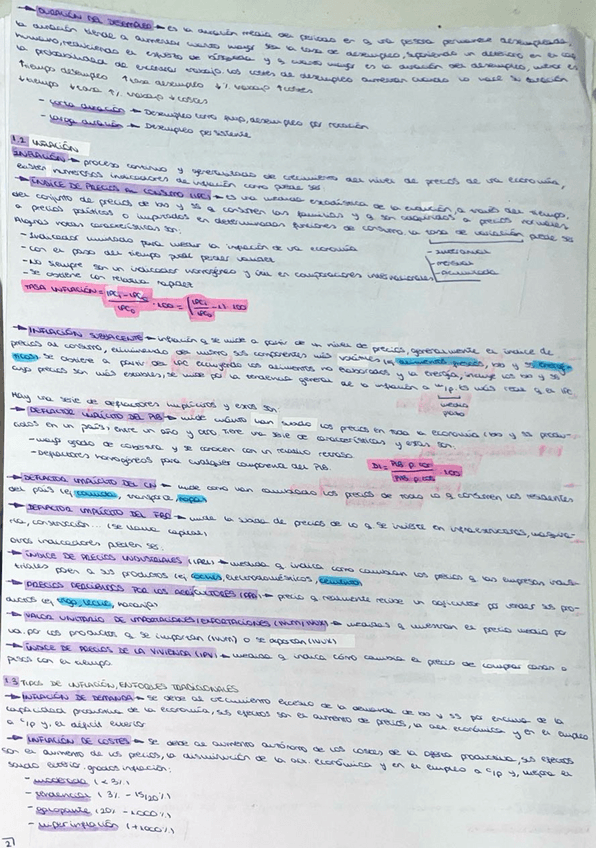 → DURACIÓN DEL DESEMPLEO → es la duración media del periodo en q una persona permanece desempleada,
la duración tiende a aumentar cuanto mayor sea la tasa de desempleo, suponiendo un deterioro en el cap.
humano, reduciendo el esfuerzo de búsqueda y q cuanto mayor es la duración del desempleo, menor es
la probabilidad de encontrar trabajo. Los costes de desempleo aumentan cuando lo hace su duración
↑tiempo desempleo ↑ tasa desempleo ↓% trabajo ↑costes
↓tiempo ↓tasa ↑% trabajo ↓costes
- corta duración → Desempleo corto plazo, desempleo por rotación
- larga duración → Desempleo persistente
1.2 INFLACIÓN
INFLACIÓN → proceso continuo y generalizado de crecimiento del nivel de precios de una economía,
existen numerosos indicadores de inflación como puede ser:
→ ÍNDICE DE PRECIOS AL CONSUMO (IPC) → es una medida estadística de la evolución, a través del tiempo,
del conjunto de precios de bb y ss q consumen las familias y q son adquiridos a precios normales
a precios políticos o imputados en determinadas funciones de consumo. La tasa de variación puede ser
Algunas notas características son:
- Indicador limitado para medir la inflación de una economía
- Con el paso del tiempo puede perder validez
- No siempre son un indicador homogéneo y útil en comparaciones internacionales
- Se obtiene con relativa rapidez
- interanual
- mensual
- acumulada
TASA INFLACIÓN = IPC₁ - IPC₀ / IPC₀ · 100 = (IPC₁ / IPC₀ - 1) · 100
→ INFLACIÓN SUBYACENTE → inflación q se mide a partir de un nivel de precios, generalmente el índice de
precios al consumo, eliminando del mismo sus componentes más volátiles (ej alimentos frescos, bb y ss energé-
ticos) se obtiene a partir del IPC excluyendo los alimentos no elaborados y la energía, incluye los bb y ss
cuyo precios son más estables, se mide por la tendencia general de la inflación a m/p. Es más real q el IPC
medio
plazo
Hay una serie de deflactores implícitos y estos son:
→ DEFLACTOR IMPLÍCITO DEL PIB → mide cuánto han subido los precios en toda la economía (bb y ss produ-
cidos en un país) entre un año y otro. Tiene una serie de características y estas son:
- mayor grado de cobertura y se conocen con un relativo retraso
- Deflactores homogéneos para cualquier componente del PIB.
→ DEFLACTOR IMPLÍCITO DEL CN → mide como han cambiado los precios de todo lo q consumen los residentes
del país (ej comida, transporte, ropa)
→ DEFLACTOR IMPLÍCITO DEL FBC → mide la subida de precios de lo q se invierte en infraestructuras, maquina-
ria, construcción... (se llama capital)
Otros indicadores pueden ser:
→ ÍNDICE DE PRECIOS INDUSTRIALES (IPRI) → medida q indica como cambian los precios q las empresas indus-
triales ponen a sus productos (ej coches, electrodomésticos, cemento)
→ PRECIOS PERCIBIDOS POR LOS AGRICULTORES (PPA) → precio q realmente recibe un agricultor por vender sus pro-
ductos (ej trigo, leche, naranjas)
→ VALOR UNITARIO DE IMPORTACIONES/EXPORTACIONES (IVUM/IVUX) → medidas q muestran el precio medio por
ud. por los productos q se importan (IVUM) o se exportan (IVUX)
→ ÍNDICE DE PRECIOS DE LA VIVIENDA (IPV) → medida q indica cómo cambia el precio de comprar casas o
pisos con el tiempo
1.3 TIPOS DE INFLACIÓN, ENFOQUES TRADICIONALES
→ INFLACIÓN DE DEMANDA → se debe al crecimiento excesivo de la demanda de bb y ss por encima de la
capacidad productiva de la economía, sus efectos son el aumento de precios, la act. económica y en el empleo
a c/p y, el déficit exterior
→ INFLACIÓN DE COSTES → se debe al aumento autónomo de los costes de la oferta productiva, sus efectos
son el aumento de los precios, la disminución de la act. económica y en el empleo a c/p y, mejora el
saldo exterior. grados inflación:
- moderada (< 3%)
- tendencial (3% - 15/20%)
- galopante (20% - 1000%)
- superinflación (+1000%)
2